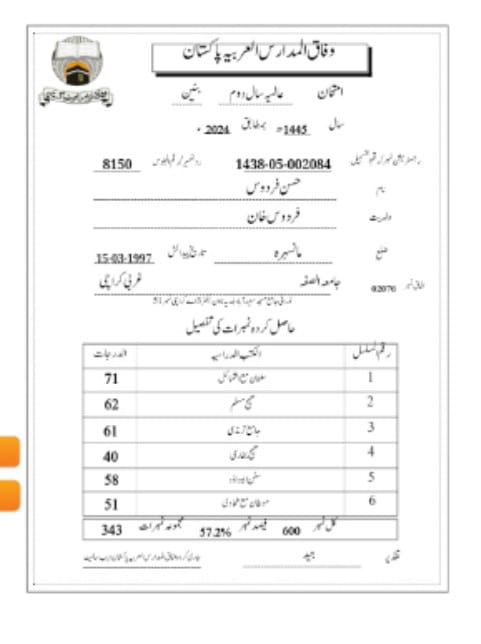 وفاق المدارس العربیہ پاکستان
امتحان عالمیہ سال دوم بنین
سال 1445ھ بمطابق 2024ء
رجسٹریشن نمبر / رقم التسجیل 1438-05-002084 رول نمبر / رقم الجلوس 8150
نام حسن فردوس
ولدیت فردوس خان
ضلع مانسہرہ تاریخ پیدائش 15-03-1997
الحاق نمبر 02076 جامعہ الصفہ غربی کراچی
حاصل کردہ نمبرات کی تفصیل
رقم المسلسل الکتب الدراسیہ الدرجات
1 سلمان مع الشمائل 71
2 صحیح مسلم 62
3 جامع ترمذی 61
4 صحیح بخاری 40
5 سنن ابوداؤد 58
6 موطان مع طحاوی 51
کل نمبر 600 فیصد نمبر 57.2% مجموعہ نمبرات 343
تقدیر جید